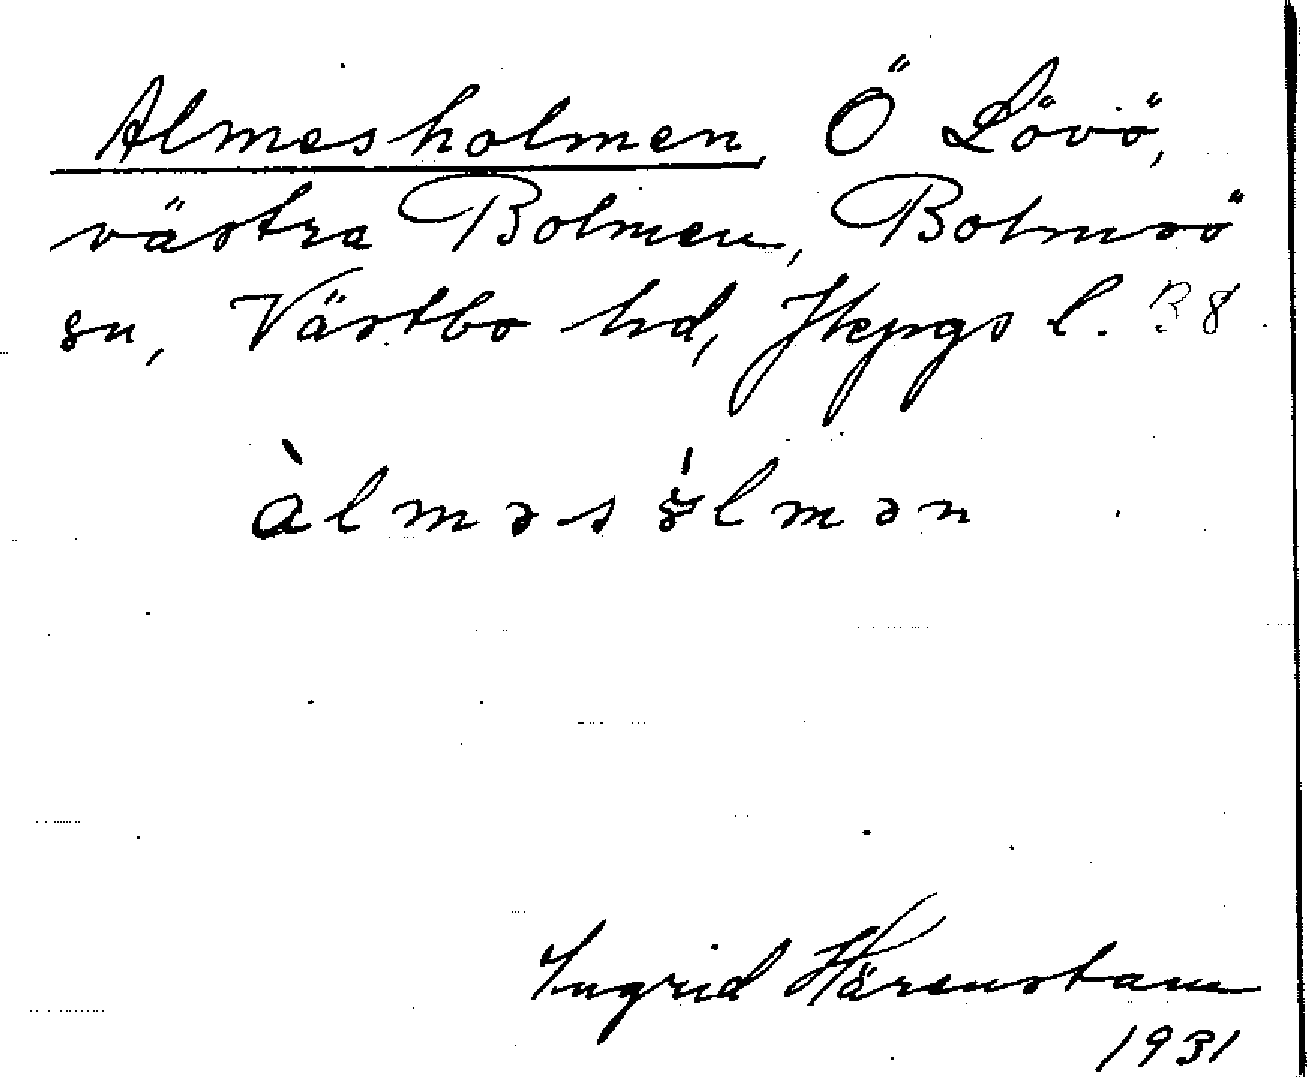 Almesholmen, Ö Lövö,
västra Bolmen, Bolmsö
sn, Västbo hd, Jkpgs l. B8
àlməsålmən
Ingrid Härenstam
1931